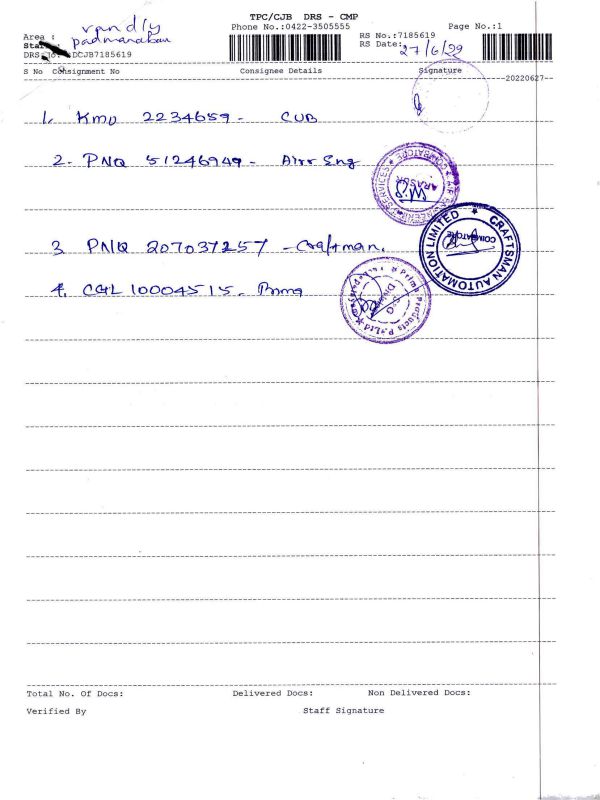 TPC/CJB DRS - CMP
Phone No.:0422-3505555
Page No.:1
Area : vandly
Staff : padmanaban
DRS No. DCJB7185619
RS No.:7185619
RS Date: 27/6/22
S No Consignment No Consignee Details Signature
20220627
1. KMU 2234659 - CUB
2. PNQ 51246949 - Airr Eng
3. PNQ 207037257 - Craftman.
4. CGL 10004515 - Prima
AIR ENGINEERING SERVICES
COIMBATORE
ARASUR
CRAFTSMAN AUTOMATION LIMITED
COIMBATORE
Products P. Ltd
Total No. Of Docs: Delivered Docs: Non Delivered Docs:
Verified By Staff Signature